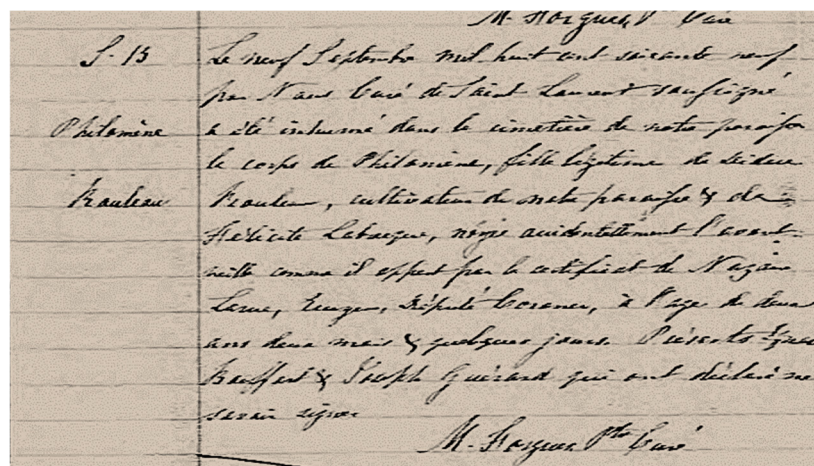 M. Forgues Ptre Curé
S-15
Le neuf Septembre mil huit cent soixante neuf
par Nous Curé de Saint Laurent soussigné
Philomène
a été inhumé dans le cimetière de notre paroisse
le corps de Philomène, fille légitime de
Rouleau
Rouleau, cultivateur de notre paroisse & de
Félicité Labrecque, noyée accidentellement l'avant
veille comme il appert par le certificat de Nazaire
Larue, Ecuyer, Député Coroner, à l'age de deux
ans deux mois & quelques jours. Présents
Gosselin & Joseph Guérard qui ont déclaré ne
savoir signer
M. Forgues Ptre Curé